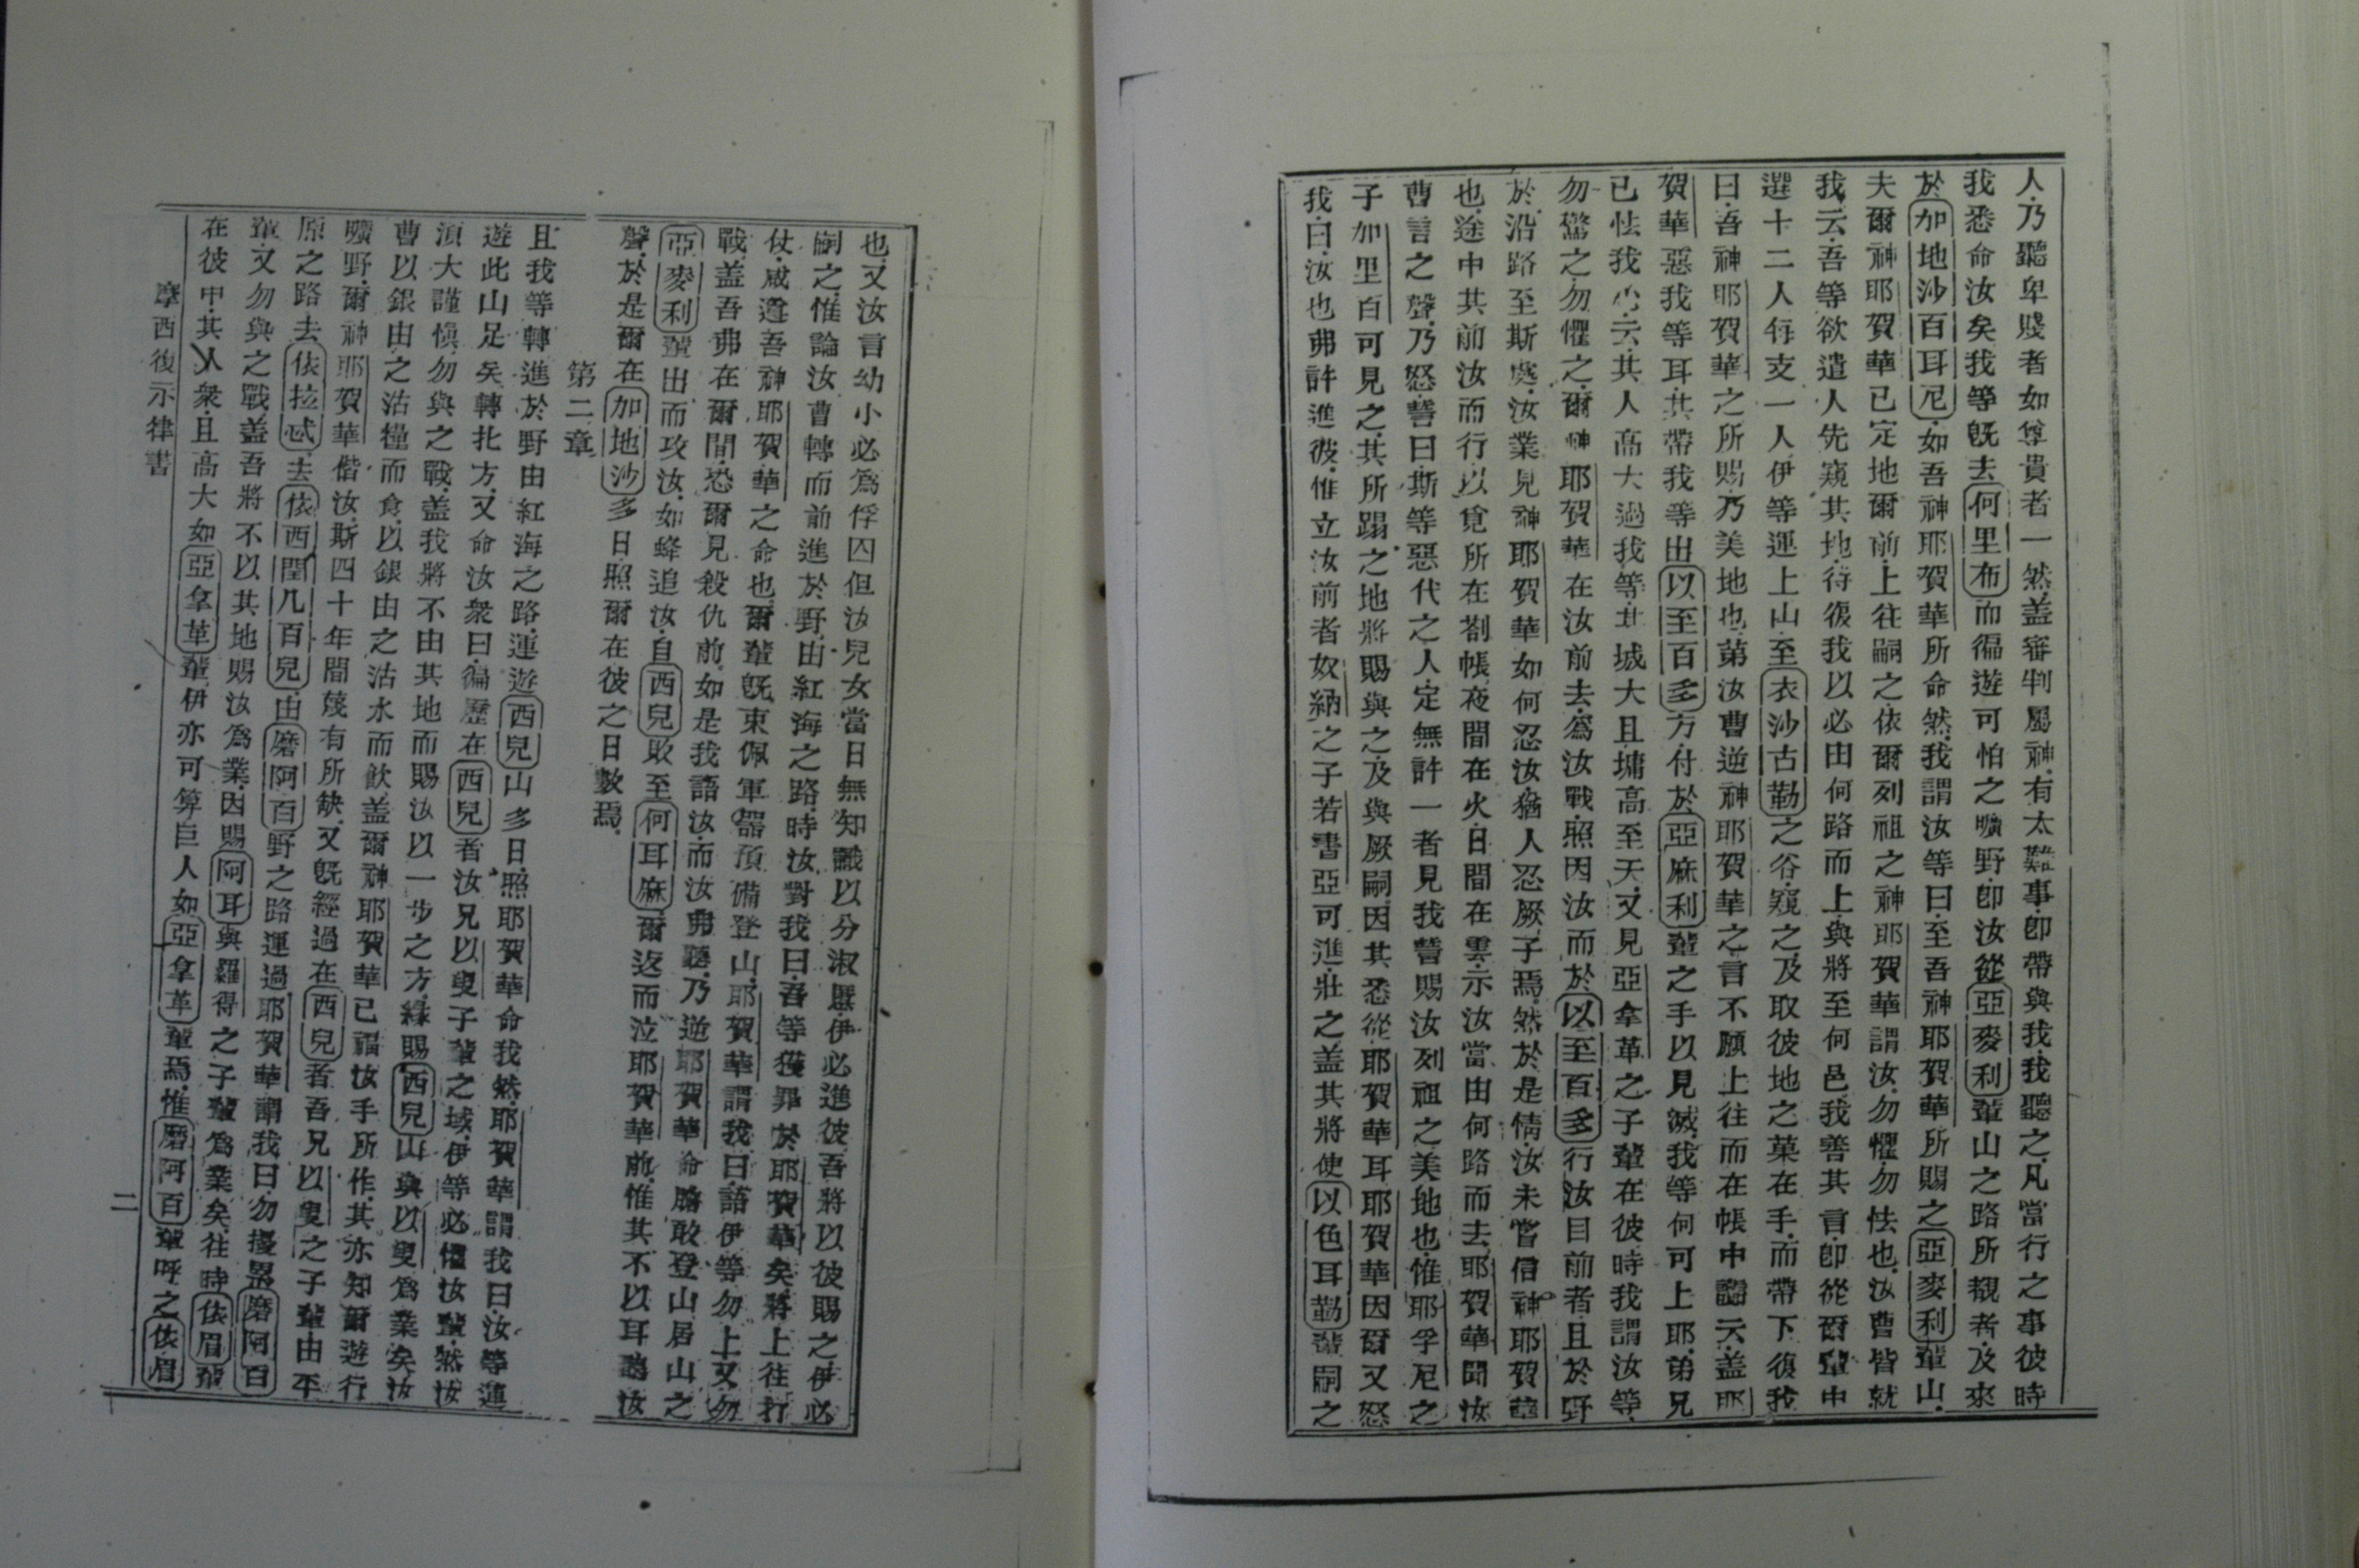 人乃聽卑賤者如尊貴者一然蓋審判屬神有太難事卽帶與我我聽之凡當行之事彼時
我悉命汝矣我等旣去何里布而徧遊可怕之曠野卽汝從亞麥利輩山之路所覩者及來
於加地沙百耳尼如吾神耶賀華所命然我謂汝等曰至吾神耶賀華所賜之亞麥利輩山
夫爾神耶賀華已定地爾前上往嗣之依爾列祖之神耶賀華謂汝勿懼勿怯也汝曹皆就
我云吾等欲遣人先窺其地待復我以必由何路而上與將至何邑我善其言卽從爾輩中
選十二人每支一人伊等運上山至衣沙古勒之谷窺之及取彼地之菓在手而帶下復我
曰吾神耶賀華之所賜乃美地也第汝曹逆神耶賀華之言不願上往而在帳中譖云蓋耶
賀華惡我等耳其帶我等出以至百多方付於亞麻利輩之手以見滅我等何可上耶弟兄
已怯我心云其人高大過我等其城大且墉高至天又見亞拿革之子輩在彼時我謂汝等
勿驚之勿懼之爾神耶賀華在汝前去爲汝戰照因汝而於以至百多行汝目前者且於野
於沿路至斯處汝業見神耶賀華如何忍汝猶人忍厥子焉然於是情汝未嘗信神耶賀華
也途中其前汝而行以覓所在劄帳夜間在火日間在雲示汝當由何路而去耶賀華聞汝
曹言之聲乃怒誓曰斯等惡代之人定無許一者見我誓賜汝列祖之美地也惟耶孚尼之
子加里百可見之其所蹋之地將賜與之及與厥嗣因其悉從耶賀華耳耶賀華因爾又怒
我曰汝也弗許進彼惟立汝前者奴納之子若書亞可進壯之蓋其將使以色耳勒輩嗣之
也又汝言幼小必爲俘囚但汝兒女當日無知識以分淑慝伊必進彼吾將以彼賜之伊必
嗣之惟論汝曹轉而前進於野由紅海之路時汝對我曰吾等獲罪於耶賀華矣將上往打
仗咸遵吾神耶賀華之命也爾輩旣束佩軍器預備登山耶賀華謂我曰語伊等勿上又勿
戰蓋吾弗在爾間恐爾見殺仇前如是我語汝而汝弗聽乃逆耶賀華命膽敢登山居山之
亞麥利輩出而攻汝如蜂追汝自西兒敗至何耳麻爾返而泣耶賀華前惟其不以耳聽汝
聲於是爾在加地沙多日照爾在彼之日數焉
第二章
且我等轉進於野由紅海之路運遊西兒山多日照耶賀華命我然耶賀華謂我曰汝等運
遊此山足矣轉北方又命汝衆曰徧歷在西兒者汝兄以叟子輩之域伊等必懼汝輩然汝
須大謹愼勿與之戰蓋我將不由其地而賜汝以一步之方緣賜西兒山與以叟爲業矣汝
曹以銀由之沽糧而食以銀由之沽水而飲蓋爾神耶賀華已福汝手所作其亦知爾遊行
曠野爾神耶賀華偕汝斯四十年間蔑有所缺又旣經過在西兒者吾兄以叟之子輩由平
原之路去依拉忒去依西聞几百兒由磨阿百野之路運過耶賀華謂我曰勿擾累磨阿百
輩又勿與之戰蓋吾將不以其地賜汝爲業因賜阿耳與羅得之子輩爲業矣往時依眉輩
在彼中其人衆且高大如亞拿革輩伊亦可算巨人如亞拿革輩焉惟磨阿百輩呼之依眉
摩西復示律書
二